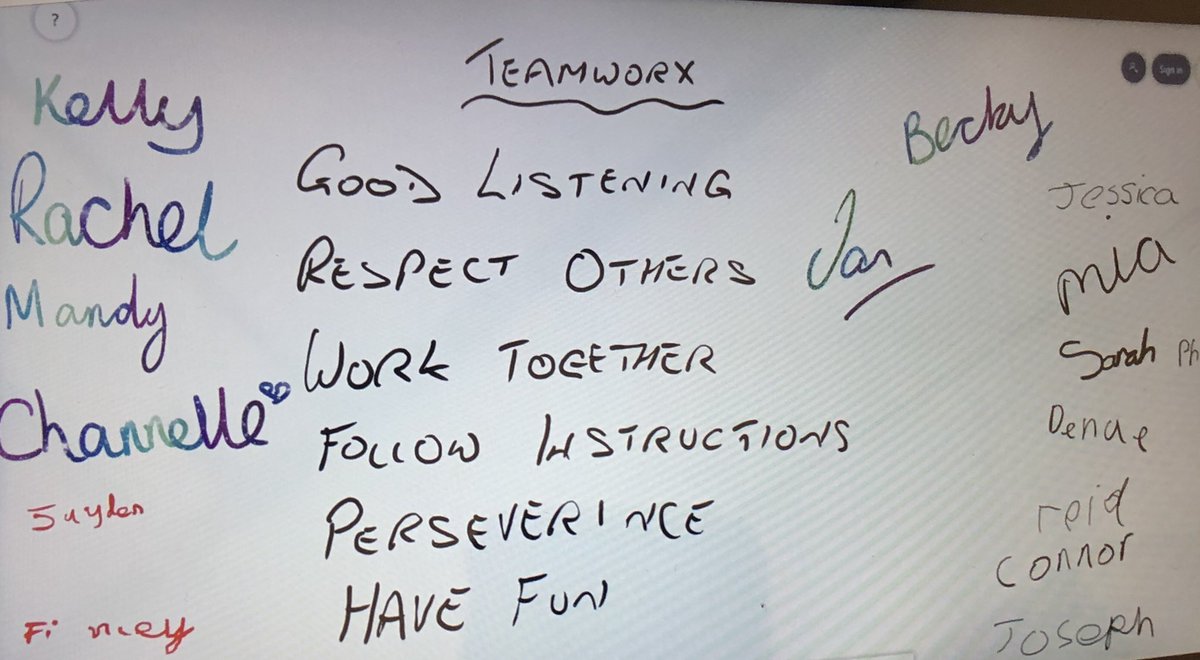 ?
TEAMWORX
Sign in
Kelly
Becky
GOOD LISTENING
Rachel
Jessica
RESPECT OTHERS
Jan
mia
Mandy
WORK TOGETHER
Sarah Ph
Channelle
FOLLOW INSTRUCTIONS
Denae
Jayden
PERSEVERINCE
reid
Connor
HAVE FUN
Joseph